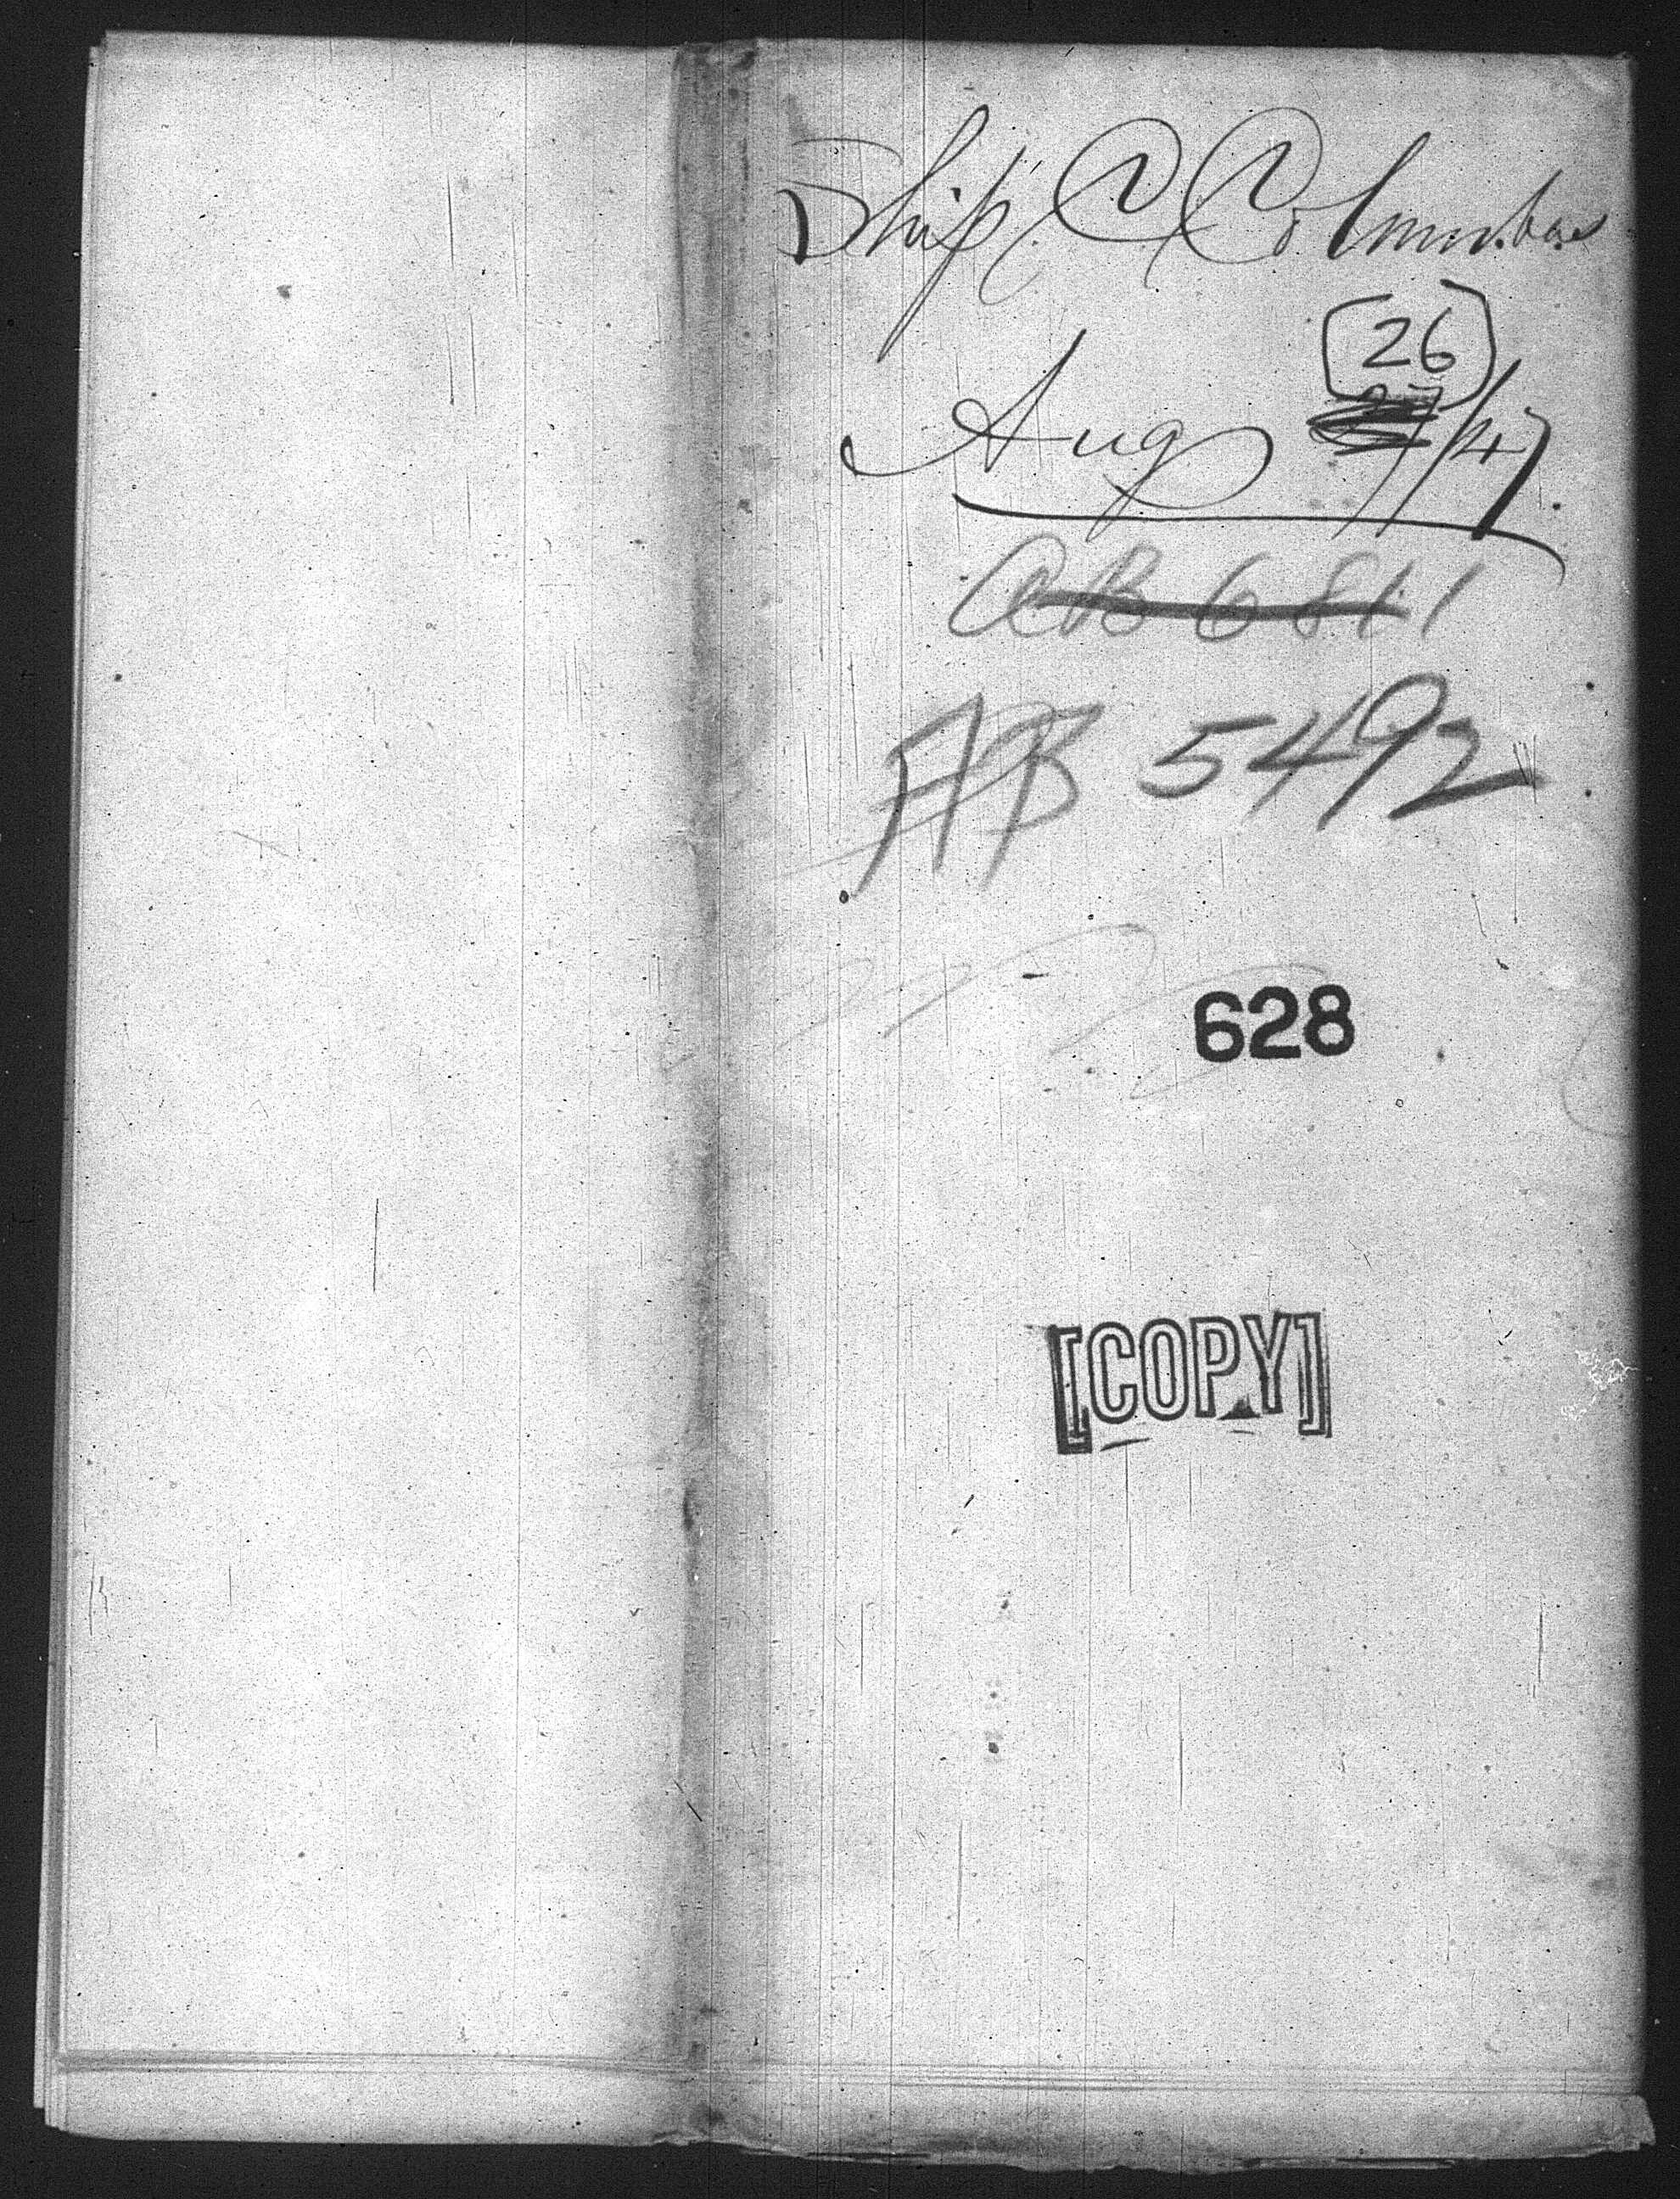 Ship C Columbus
(26)
Aug 27/47
AB 6811
AB 5492
628
[COPY]